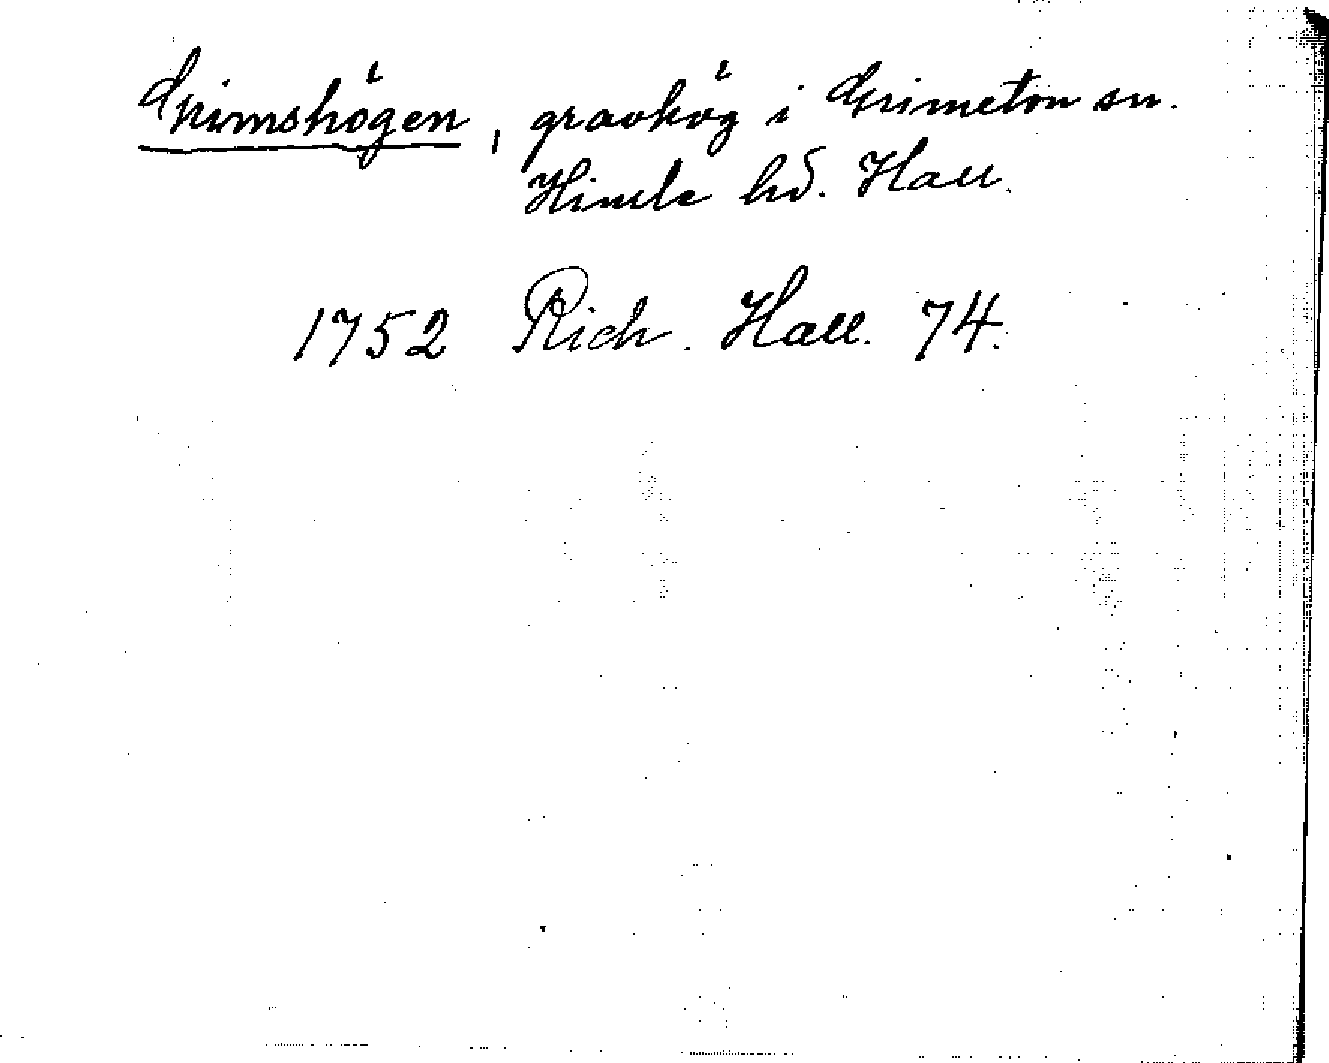 Grimshögen, gravhög i Grimeton sn.
Himle hd. Hall.
1752 Rich. Hall. 74.